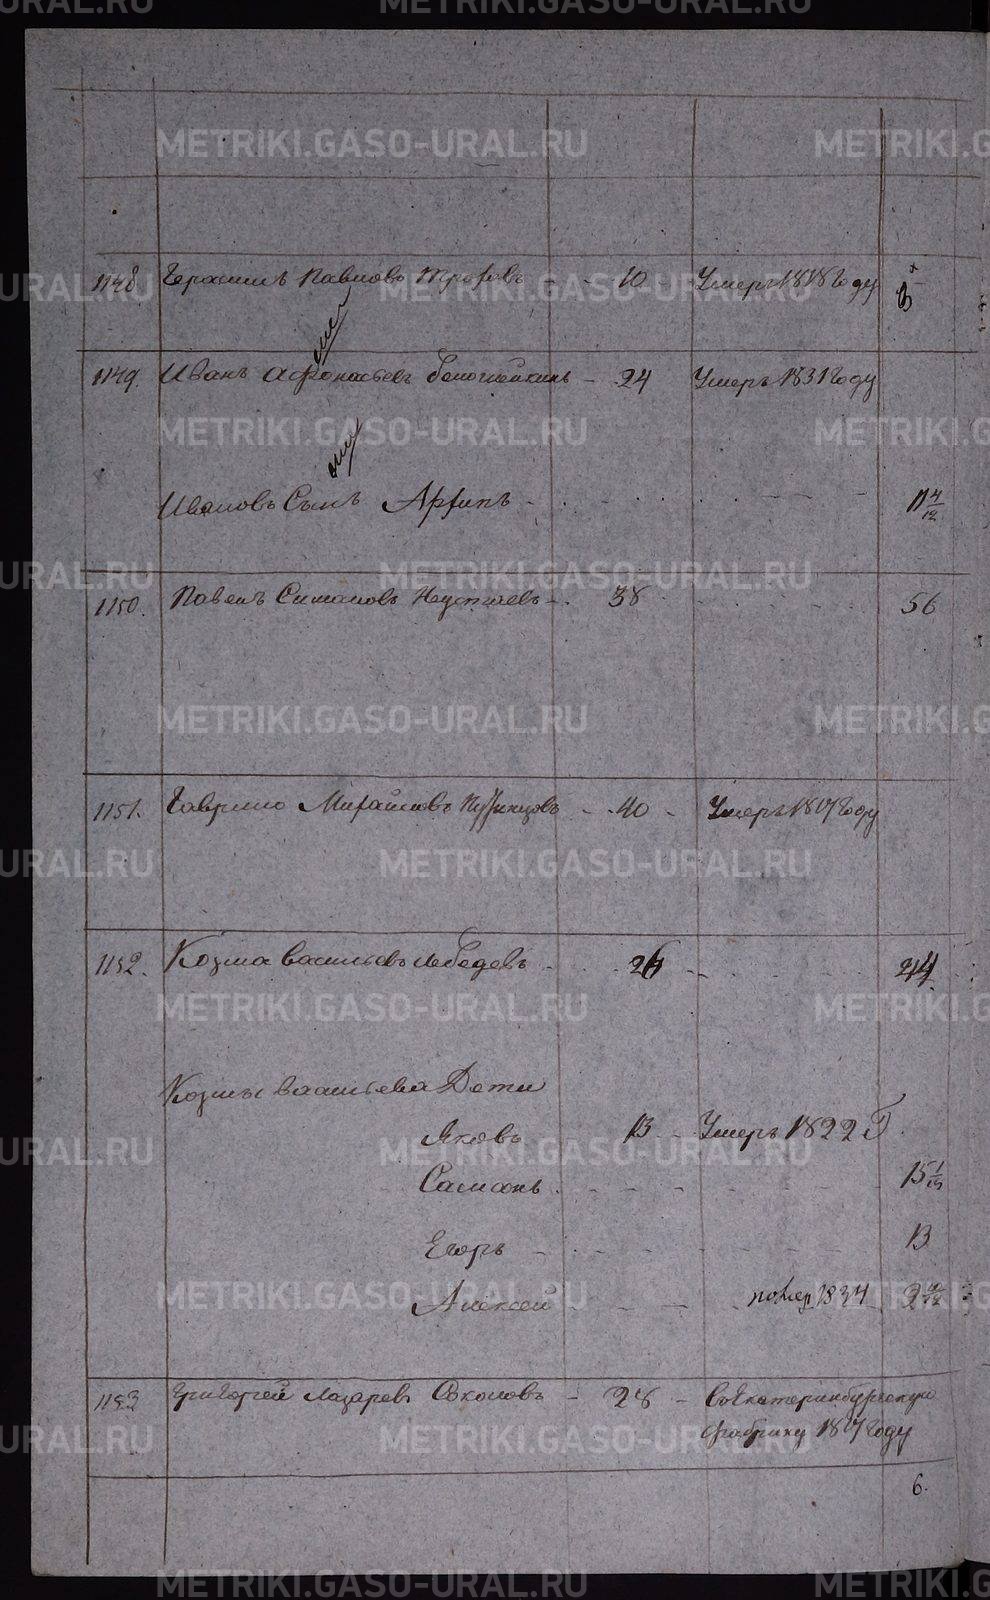 METRIKI.GASO-URAL.RU
1148. Герасимъ Павловъ - 10 - Умеръ 1818 году
1149. Иванъ Афонасьевъ - 24 Умеръ 1831 году
Ивановъ Сынъ Архипъ - 11 4/12
1150. Павелъ Симановъ - 38 56
1151. Гаврило Михайловъ - 40 - Умеръ 1817 году
1152. Козма Васильевъ Лебедевъ 26 44
Козмы Васильева Дети
Яковъ 13 Умеръ 1822 Г.
Самсонъ 15
Егоръ 13
Алексей помер 1834
1153 Григорей Лазаревъ Соколовъ - 28 - Въ Екатеринбургскую
фабрику 1817 году
6.